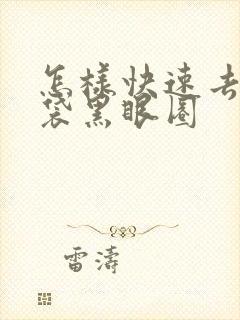 怎樣快速去
袋黑眼圈
雷濤